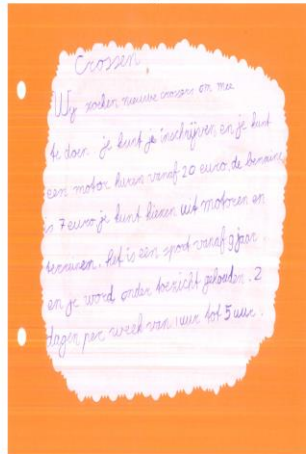 Crossen
Wij zoeken nieuwe crossers om mee
te doen. je kunt je inschrijven en je kunt
een motor huren vanaf 20 euro. de benzine
is 7 euro je kunt kiezen uit motoren en
terreinen. het is een sport vanaf 9 jaar.
en je word onder toezicht gehouden. 2
dagen per week van 1 uur tot 5 uur.